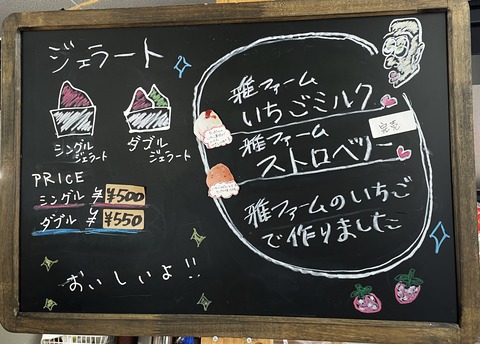 ジェラート
シングル
ジェラート
ダブル
ジェラート
PRICE
シングル ¥ ¥500
ダブル ¥ ¥550
おいしいよ!!
雅ファーム
いちごミルク
完売
雅ファーム
ストロベリー
雅ファームのいちご
で作りました